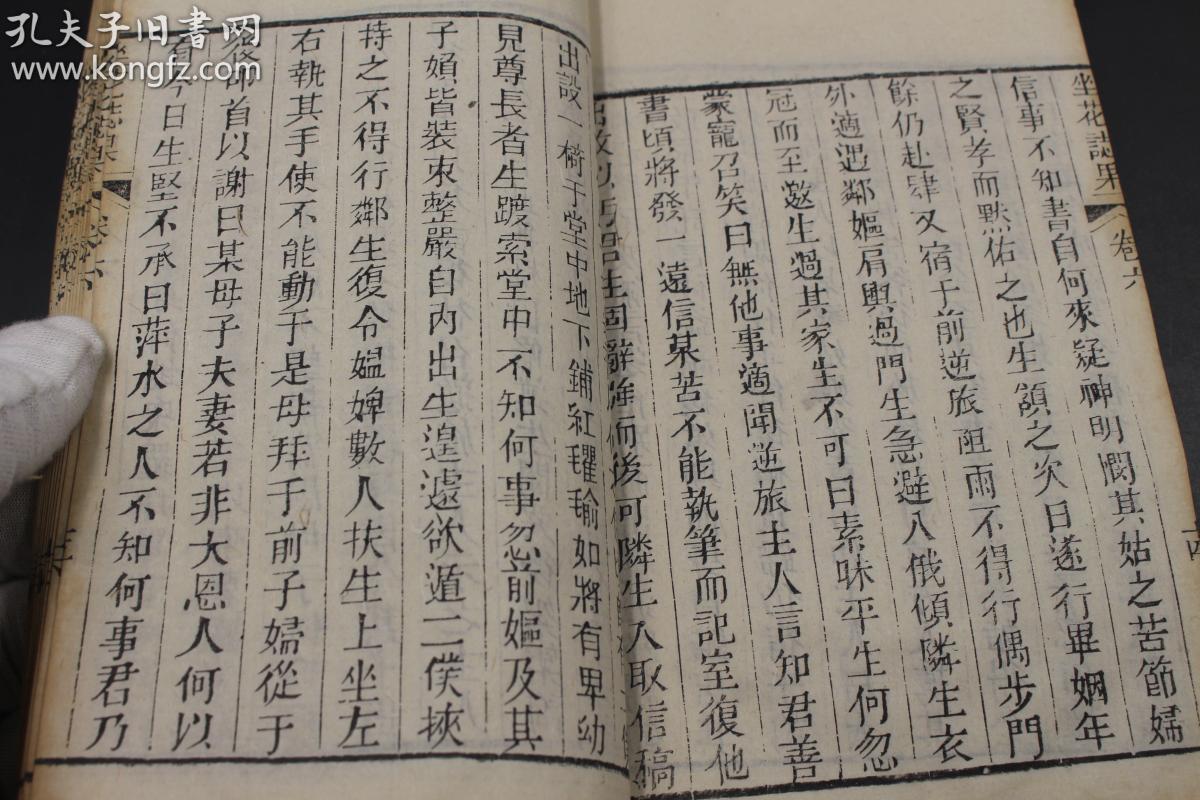 孔夫子旧书网
www.kongfz.com
坐花誌果 卷六
信事不知書自何來疑神明憫其姑之苦節婦
之賢孝而黙佑之也生頷之次日遂行畢姻年
餘仍赴肆又宿于前逆旅阻雨不得行偶步門
外適遇鄰嫗肩輿過門生急避入俄傾隣生衣
冠而至邀生過其家生不可曰素昧平生何忽
蒙寵召笑曰無他事適聞逆旅主人言知君善
書頃將發一遠信某苦不能執筆而記室復他
出設一椅于堂中地下鋪紅氍毹如將有卑幼
見尊長者生踧索堂中不知何事忽前嫗及其
子媍皆裝束整嚴自內出生遑遽欲遁二僕挾
持之不得行鄰生復令媼婢數人扶生上坐左
右執其手使不能動于是母拜于前子婦從于
後俯首以謝曰某母子夫妻若非大恩人何以
有今日生堅不承曰萍水之人不知何事君乃